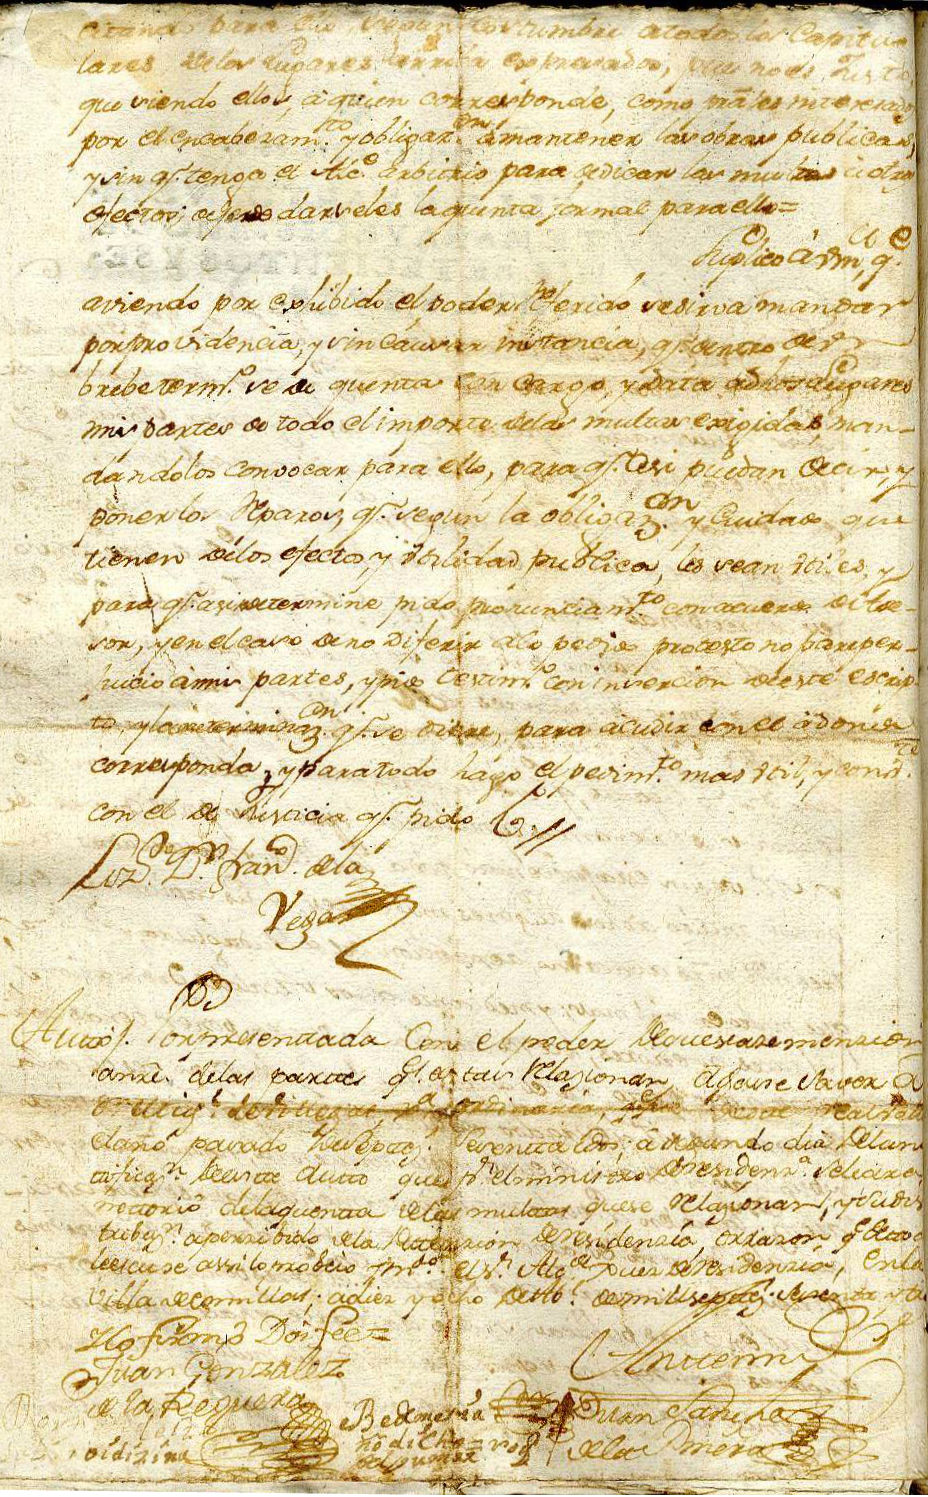 citando para ello segun costumbre a todos los Capitu-
lares de los lugares arriba expresados, pues no es Justo
que siendo ellos á quien corresponde, como mas interesados
por el encabezam.to y obligaz.on á mantener las obras publicas,
y sin q.e tenga el Alc.e arbitrio para dedicar las multas á otros
efectos, deje de darseles la quenta formal para ello =
Suplico á Vm, q.e
aviendo por exhibido el poder referido se sirva mandar
por providencia, y sin causar instancia, q.e dentro de un
brebe term.o se de quenta con cargo, y data a dhos Lugares
mis partes de todo el importe de las multas exigidas, man-
dandolos convocar para ello, para q.e asi puedan decir, y
poner los reparos, q.e segun la obligaz.on y Cuidado que
tienen de los efectos, y utilidad publica, les sean utiles, y
para q.e asi se determine pido pronunciam.to con acuerdo de Ase-
sor, y en el caso de no diferir a lo pedido protesto no pare per-
juicio á mis partes, y pido testim.o con insercion de este escrip-
to, y la determinaz.on q.e se diere, para acudir con el á donde
corresponda, y para todo hago el pedim.to mas util, y cond.te
con el de Justicia q.e pido &.//
Lizd.o D.n Fran.co de la
Vega
Autto /. Por presentada Con el poder de que se aze menzion
en re. de las partes q.e estas relazionan, Agase saver a
ordinaria, desde
el año pasado de settez.s sesenta y dos, á segundo dia de la no-
tificaz.n de este Autto que p.r el ministro de residenz.a se le aze
nottorio de la quenta de las multas que se relazionan, y su dis-
tribuz.n apersibido de la
el s.r Alc.e Juez de residenzia, en la
Villa de Comillas, á diez y ocho de de mill settez.s sesenta y
y lo firmó Doi fee =
Juan Gonzalez
de la Reguera
Antemi
Juan Sanchez
de la